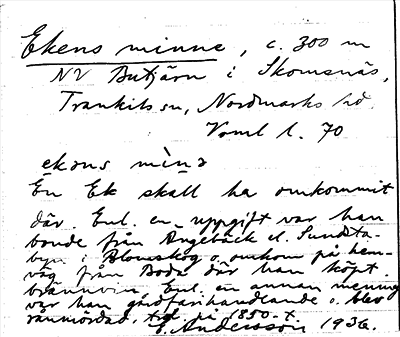 Ekens minne, c. 300 m
NV Butjärn i Skomsnäs,
Trankils sn, Nordmarks hd.
Vorml l. 70
ekons mìnə
En Ek skall ha omkommit
där. Enl. en uppgift var han
bonde från Ängebäck el. Sundsta-
byn i Blomskog o. omkom på hem-
väg från Boda där han köpt
brännvin. Enl. en annan mening
var han gårdfarihandlande o. blev
rånmördad, tid på 1850-t.
E. Andersson 1936.